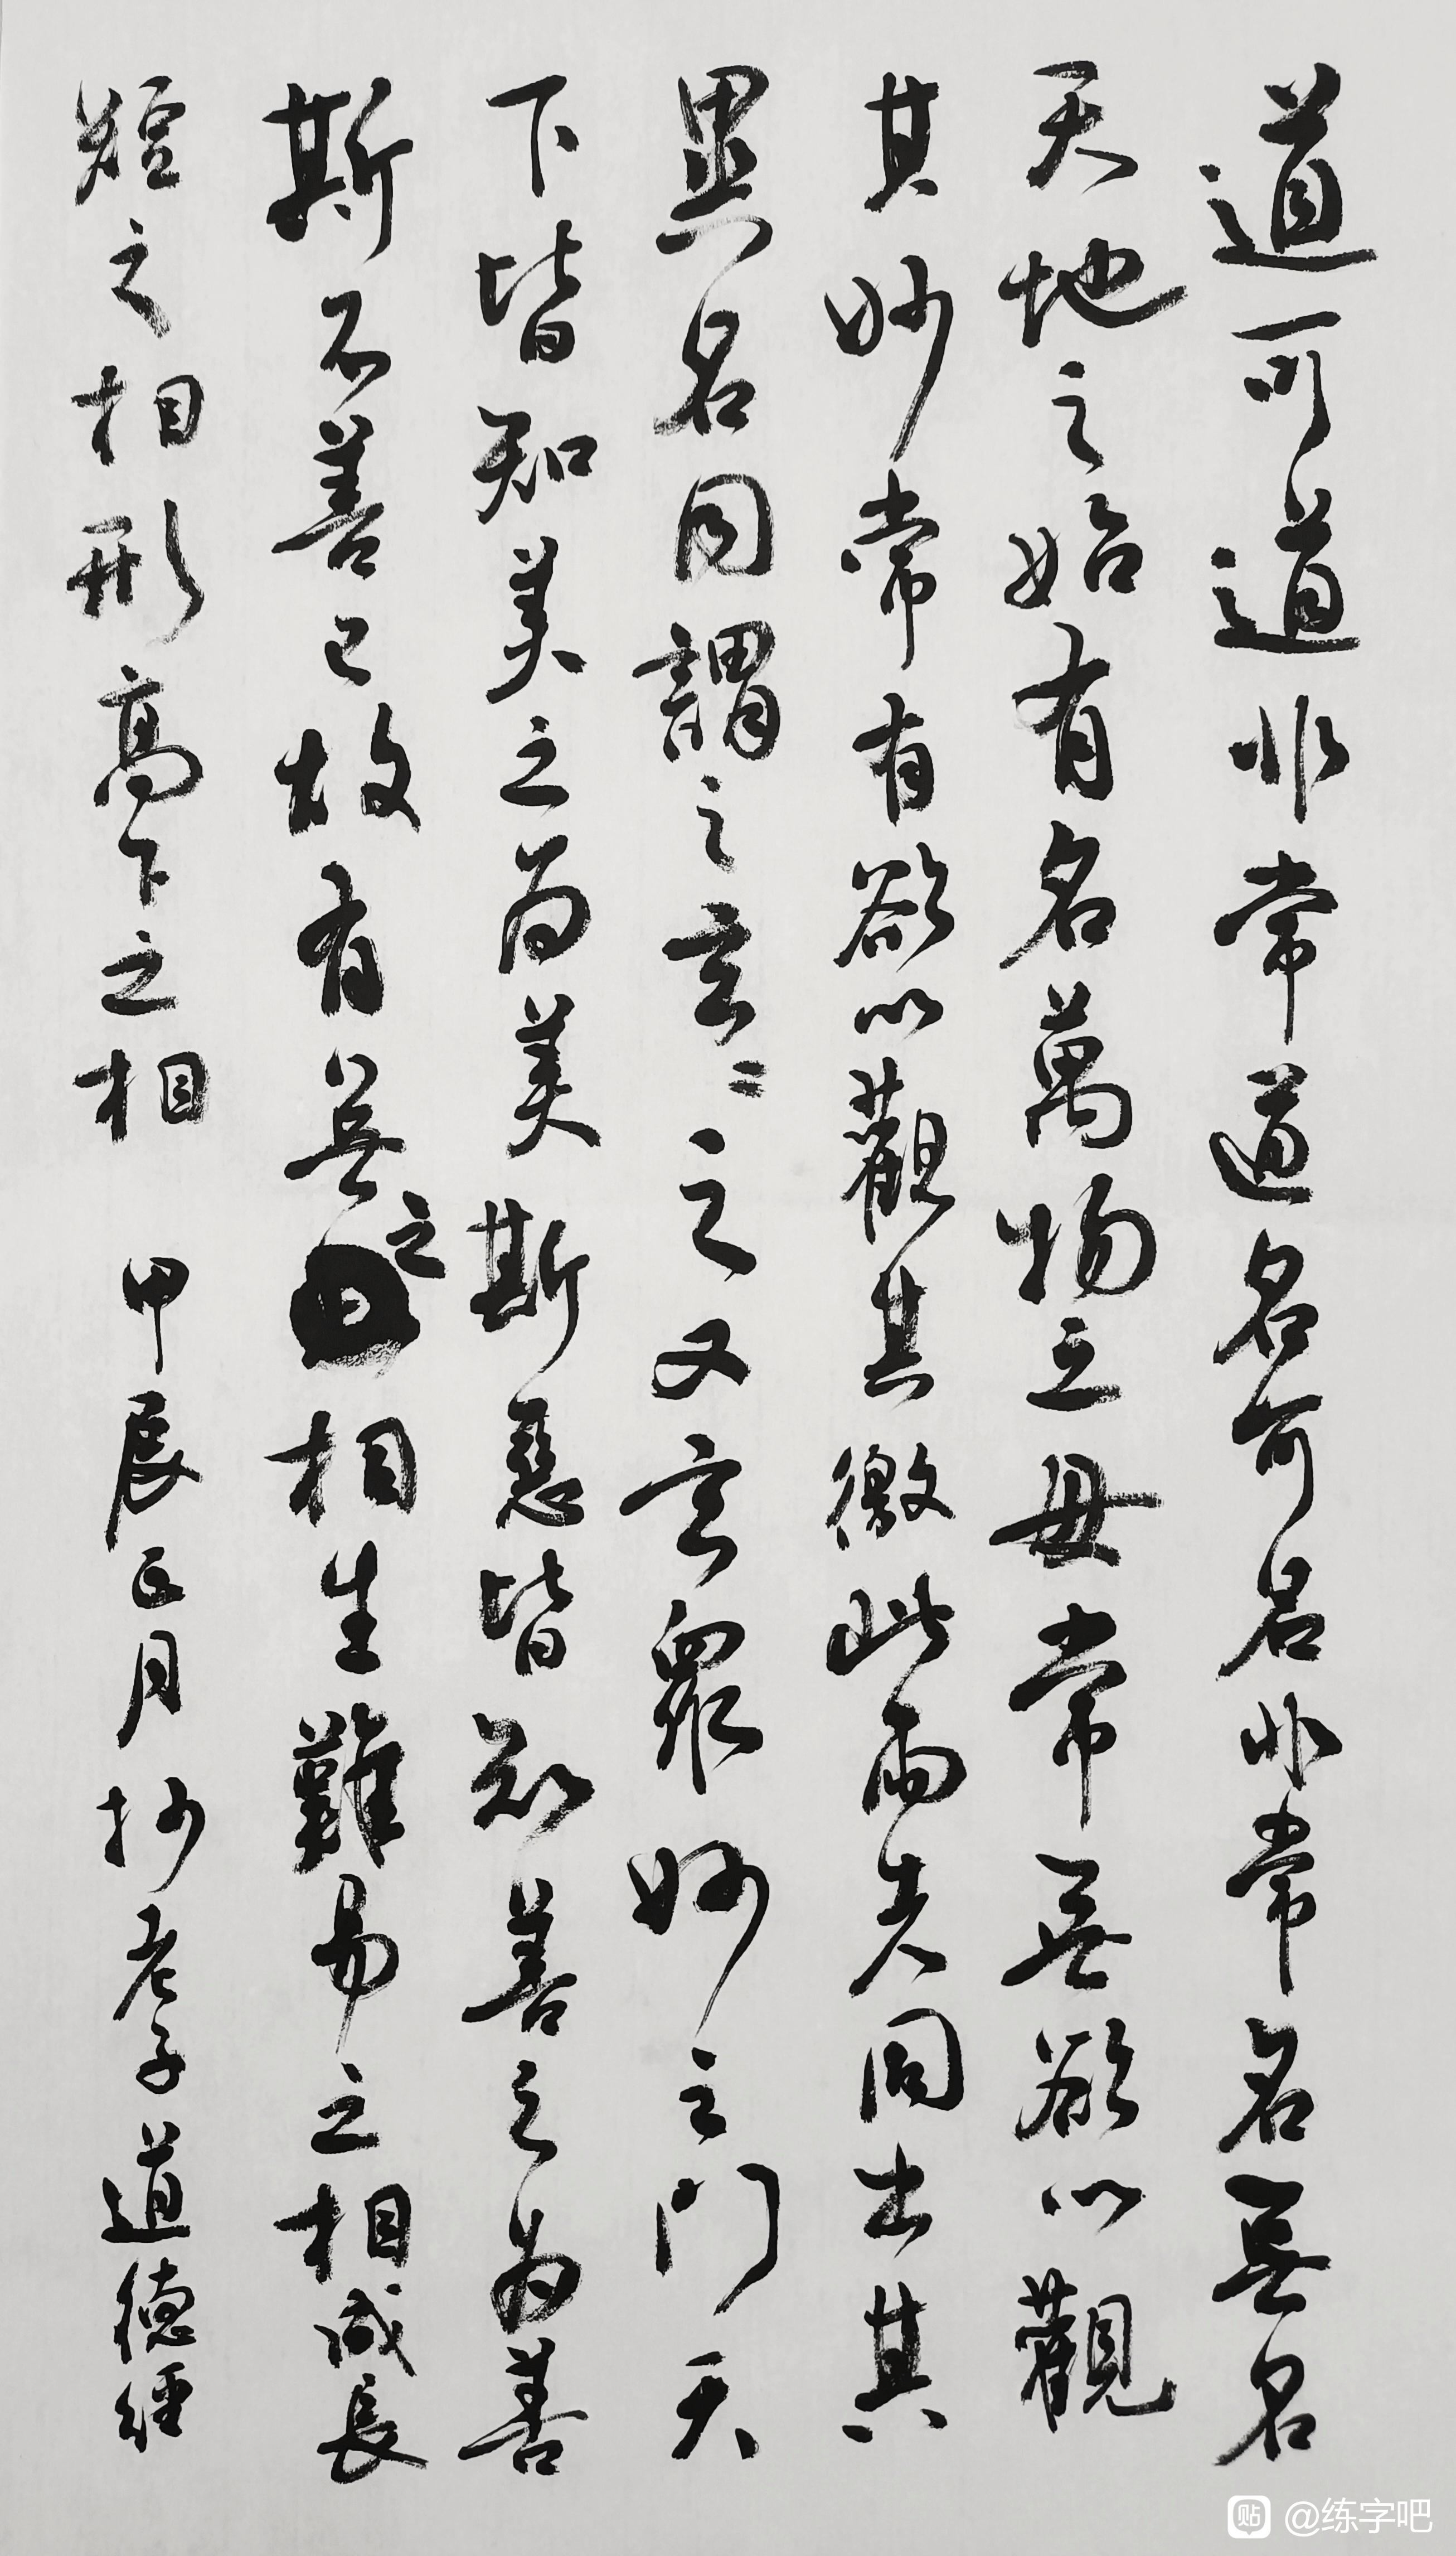 道可道非常道名可名非常名無名
天地之始有名萬物之母常無欲以觀
其妙常有欲以觀其徼此兩者同出其
異名同謂之玄〻之又玄衆妙之門天
下皆知美之為美斯惡皆知善之為善
斯不善已故有無之相生難易之相成長
短之相形高下之相 甲辰正月抄老子道德經
@练字吧